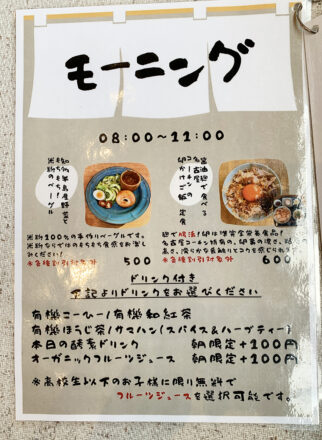 モーニング
08:00〜11:00
醤油麹で食べる
名古屋コーチンの
卵かけご飯 定食
知多半島産野菜と
もちもち!
米粉のベーグル
麹で腸活!卵は
名古屋コーチン特有の、卵黄の濃さ、
※各種割引対象外
600
米粉100%の手作りベーグルです。
米粉ならではのもちもち食感をお楽し
みください!
※各種割引対象外
500
ドリンク付き
下記よりドリンクをお選びください
有機こーひー/有機和紅茶
有機ほうじ茶/サマハン(スパイス&ハーブティー)
本日の酵素ドリンク 朝限定+100円
オーガニックフルーツジュース 朝限定+100円
※高校生以下のお子様に限り無料で
フルーツジュースを選択可能です。